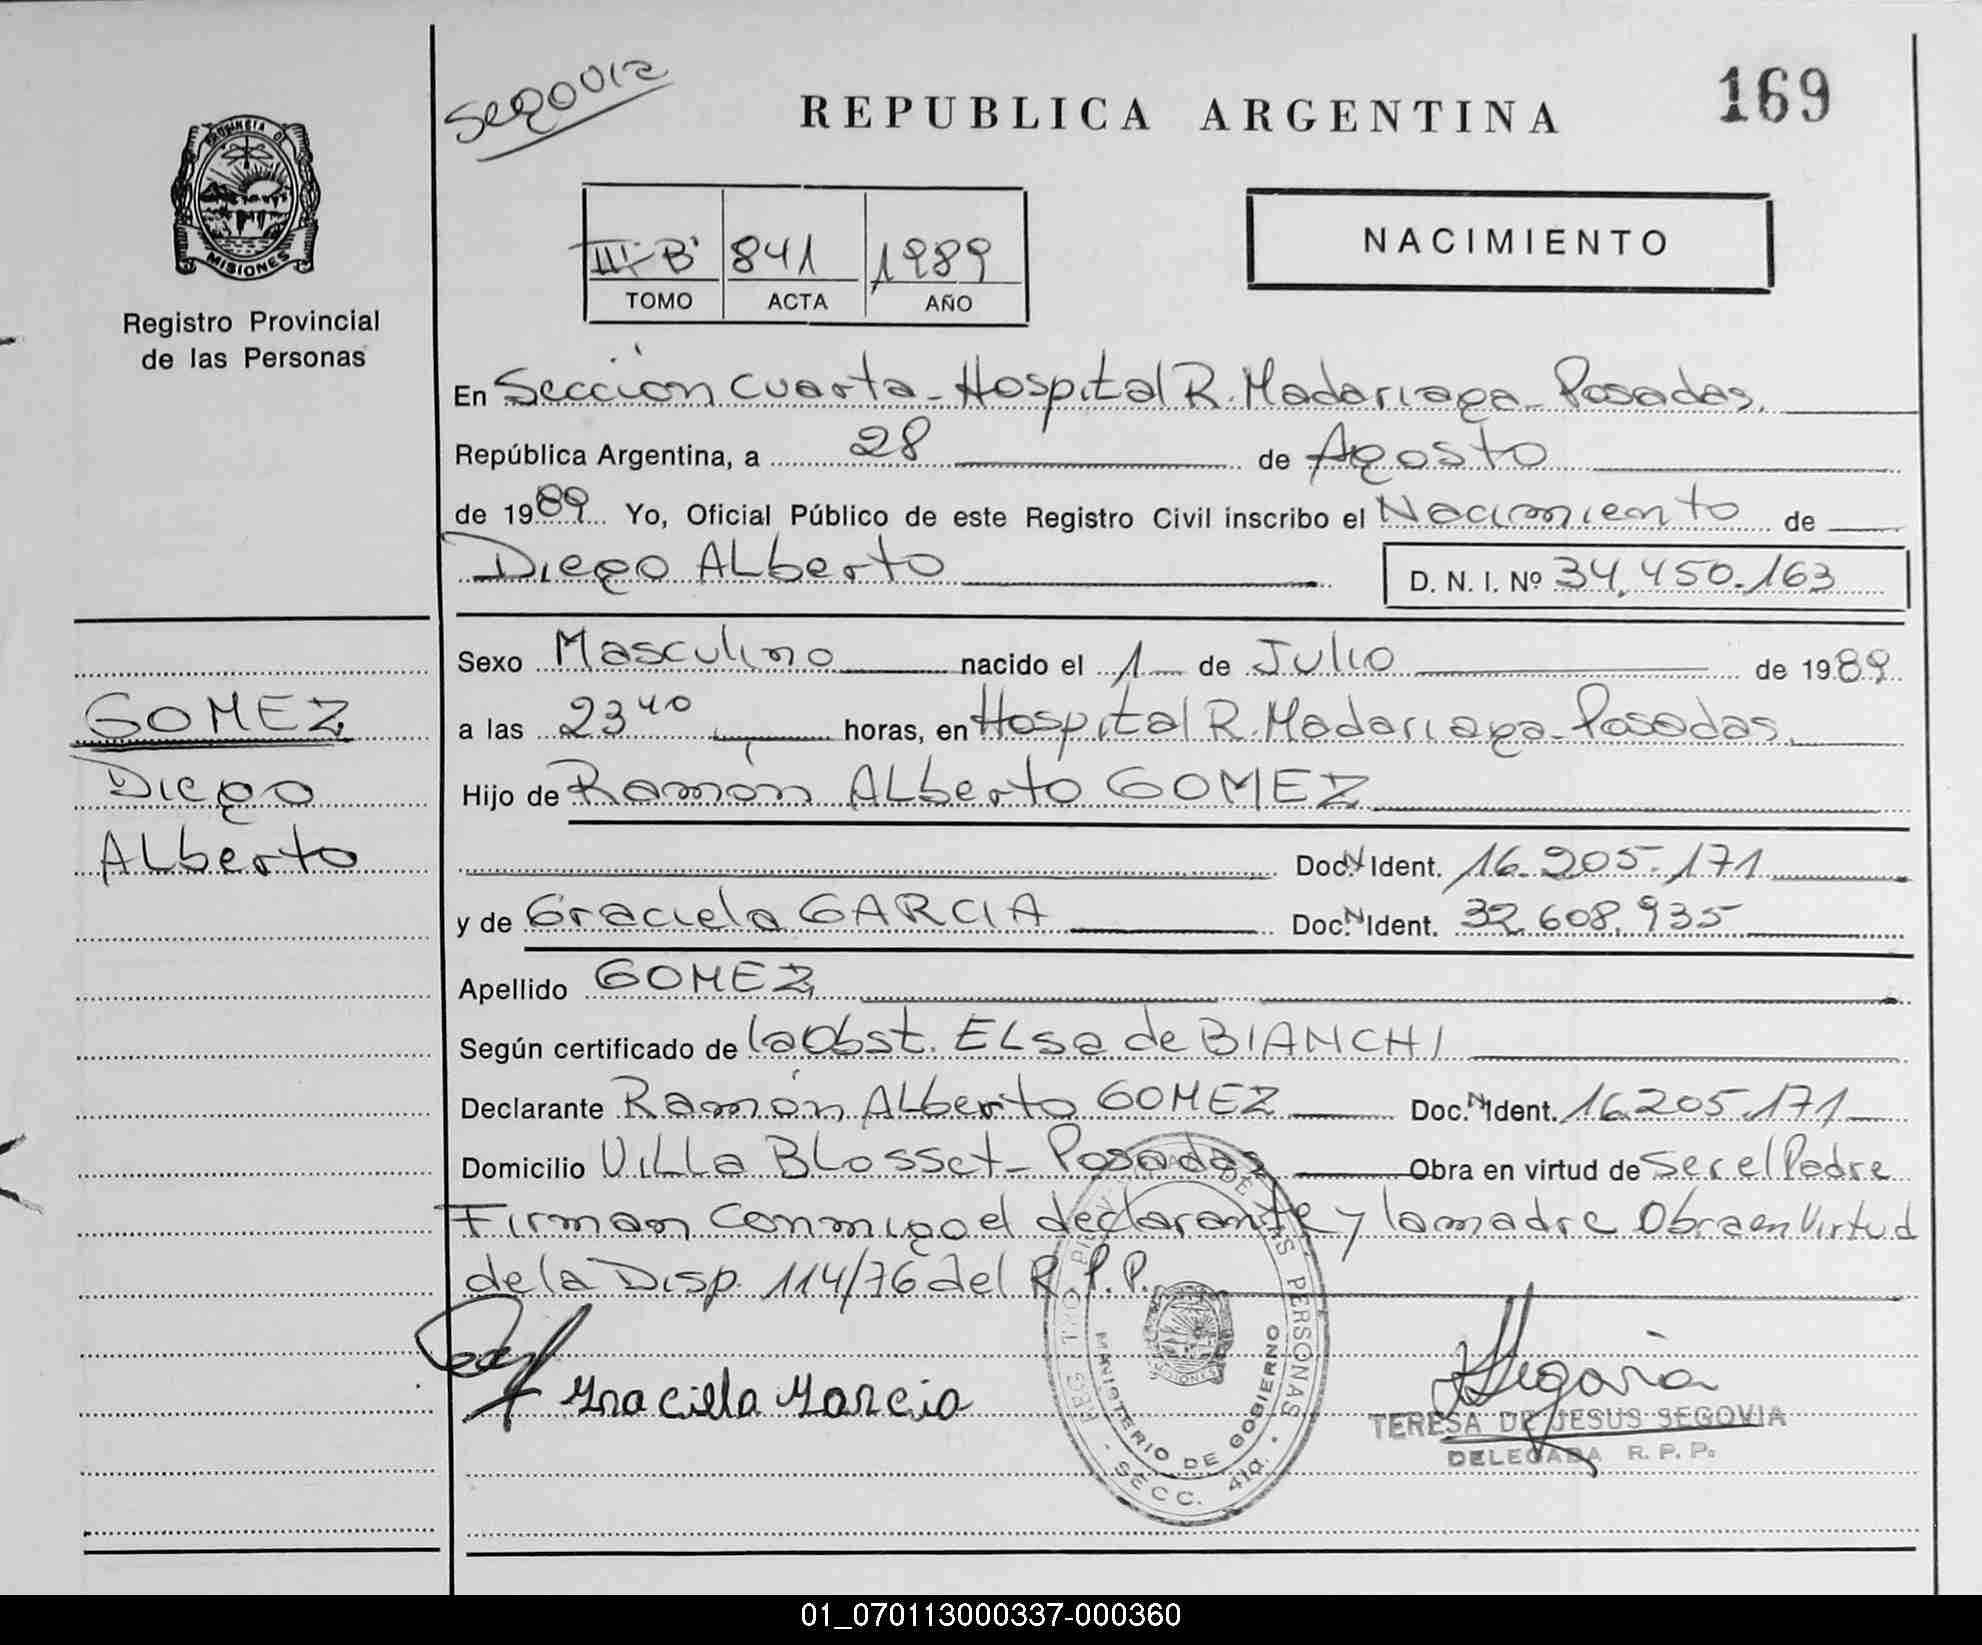 Segovia
REPUBLICA ARGENTINA
169
PROVINCIA DE
MISIONES
Registro Provincial
de las Personas
III-"B" 841 1989
TOMO ACTA AÑO
NACIMIENTO
En Sección cuarta - Hospital R. Madariaga - Posadas.
República Argentina, a 28 de Agosto
de 1989 Yo, Oficial Público de este Registro Civil inscribo el Nacimiento de
Diego ALberto D. N. I. Nº 34.450.163
Sexo Masculino nacido el 1 de Julio de 1989
GOMEZ
Diego
ALberto
a las 23 40 horas, en Hospital R. Madariaga - Posadas.
Hijo de Ramón ALberto GOMEZ
Doc. N Ident. 16.205.171
y de Graciela GARCIA Doc. N Ident. 32.608.935
Apellido GOMEZ
Según certificado de la Obst. ELsa de BIANCHI
Declarante Ramón ALberto GOMEZ Doc. N Ident. 16.205.171
Domicilio ViLLa BLosset - Posadas Obra en virtud de ser el Padre
Firman conmigo el declarante y la madre Obra en Virtud
de la Disp. 114/76 del R.P.P.
Graciela Garcia
Segovia
TERESA DE JESUS SEGOVIA
DELEGADA R. P. P.
DE LAS PERSONAS
MINISTERIO DE GOBIERNO
SECC. 4ta.
01_070113000337-000360